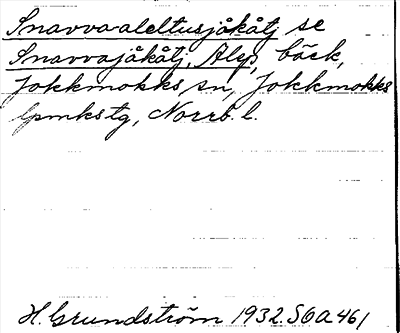 Snavva-aleltusjåkåtj se
Snavvajåkåtj, Alep, bäck,
Jokkmokks sn, Jokkmokks
lpmkstg, Norrb. l.
H. Grundström 1932. SOA 461